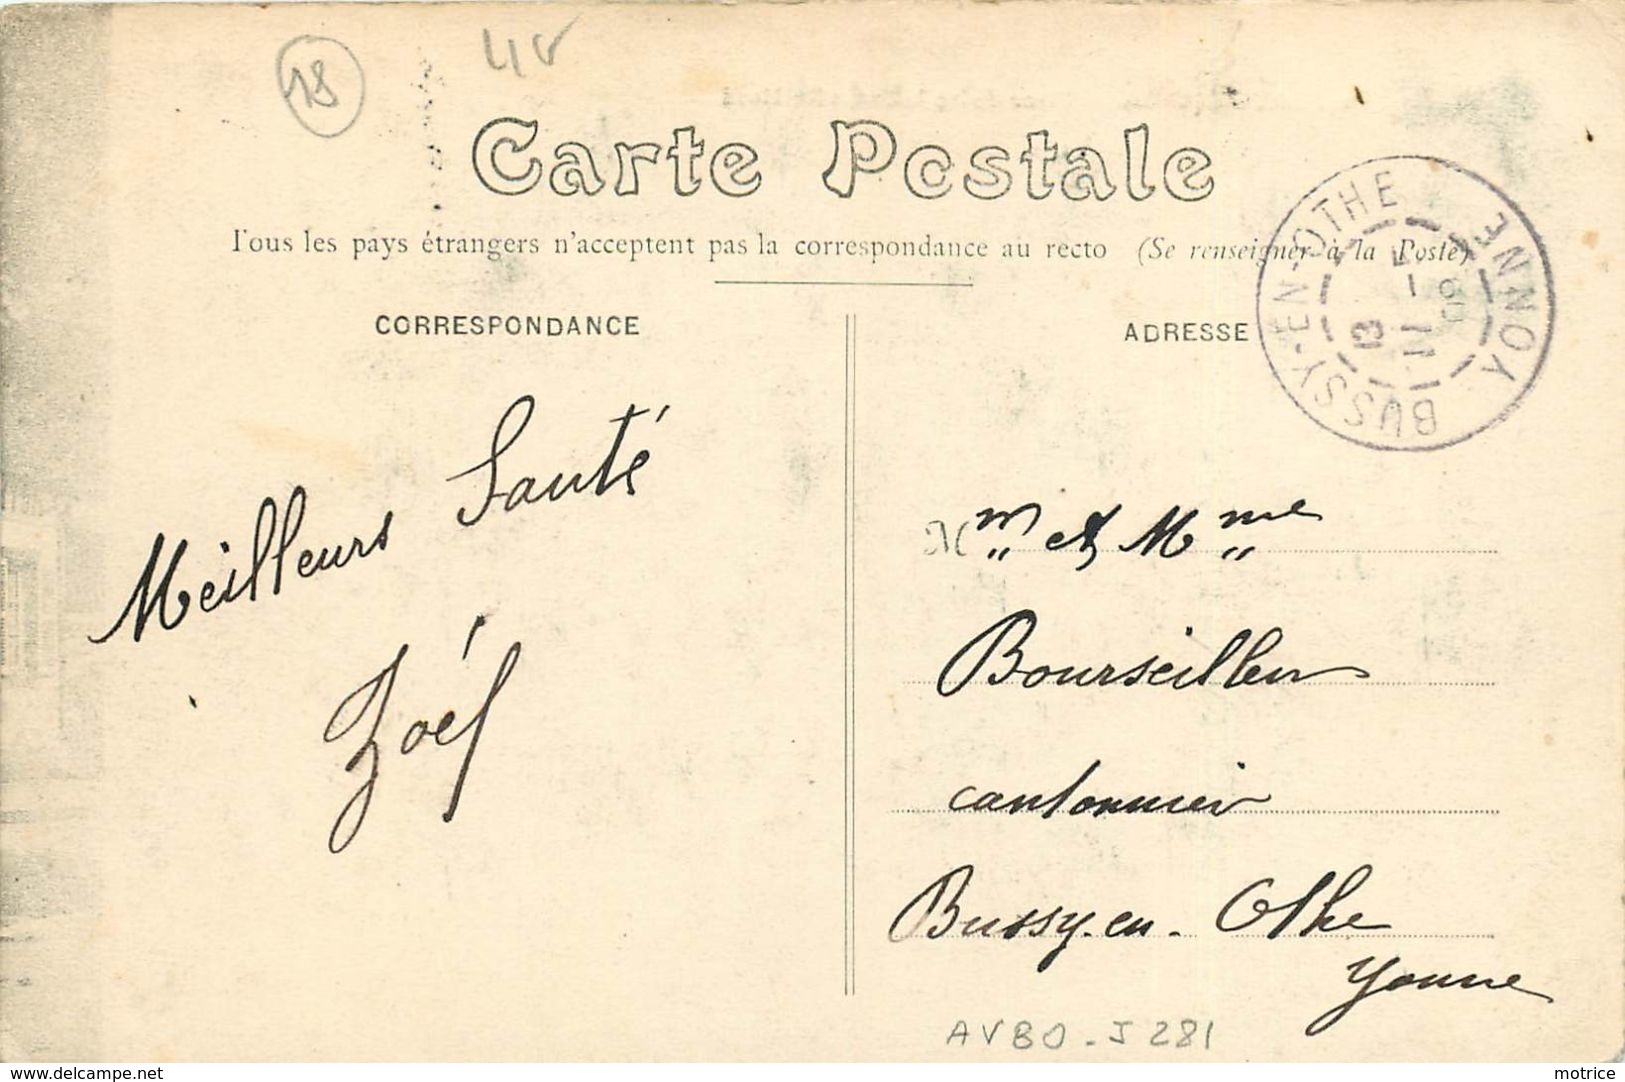 18
Carte Postale
Tous les pays étrangers n'acceptent pas la correspondance au recto (Se renseigner à la Poste)
CORRESPONDANCE
ADRESSE
BUSSY-EN-OTHE YONNE
13
Meilleurs Santé
Zoél
M et Mme
Bourseiller
cantonnier
Bussy-en-Othe
Yonne
AVBO-J281
delcampe.net
motrice